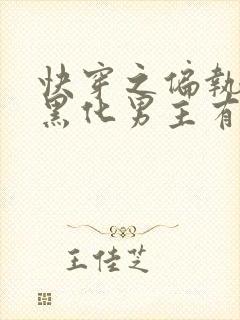 快穿之偏執
黑化男主有
王佳芝